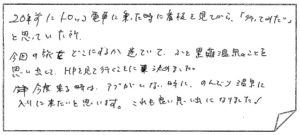 20年前にトロッコ電車に乗った時に看板を見てから、「行ってみたい」
と思っていた所
今回の旅をどこにするか迷っていて、ふと黒薙温泉のことを
思い出して、HPを見て行くことに決めました。
今度来る時は、アブがいない時に、のんびり温泉に
入りに来たいと思います。これも良い思い出になりました！